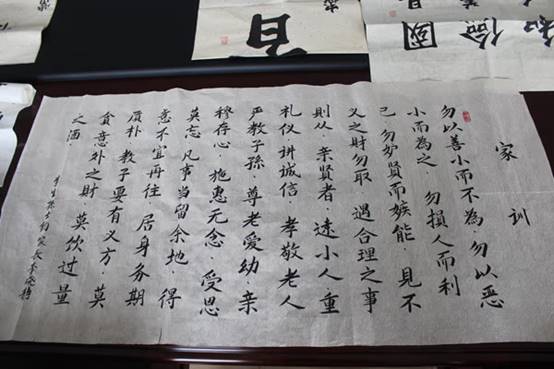 家训
勿以善小而不為·勿以恶
小而為之·勿損人而利
己·勿妒賢而嫉能·見不
义之財勿取·遇合理之事
則从·亲賢者·遠小人·重
礼仪·讲诚信·孝敬老人
严教子孫·尊老愛幼·亲
穆存心·施惠无念·受恩
莫忘·凡事当留余地·得
意不宜再往·居身务期
质朴·教子要有义方·莫
貪意外之財·莫饮过量
之酒
家长李
儉
國